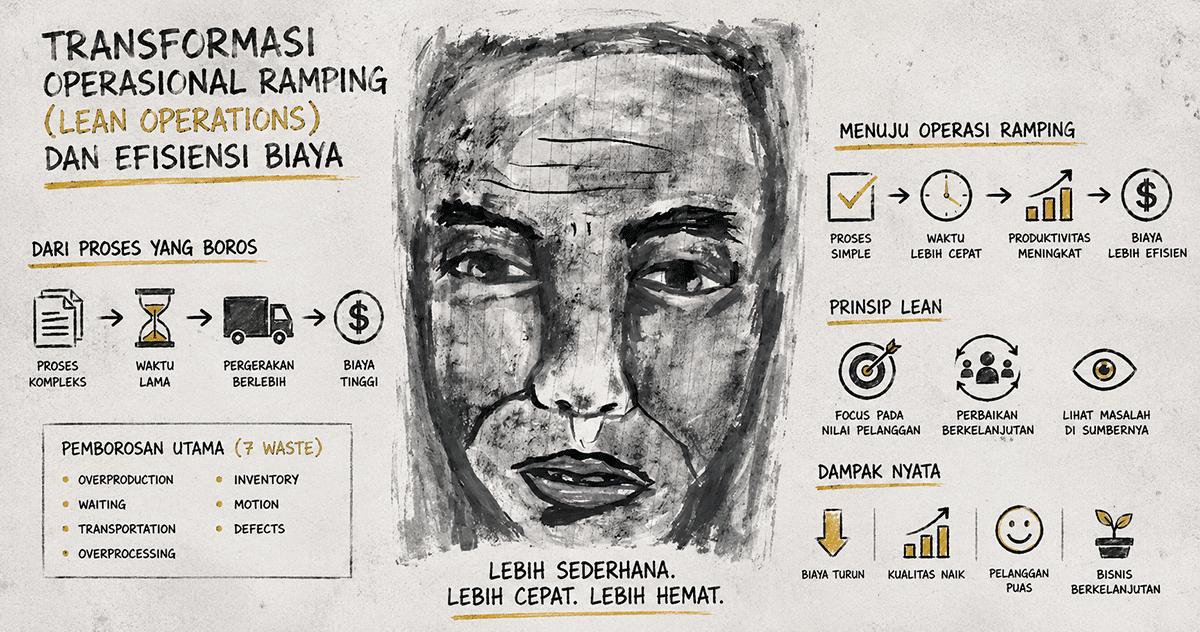 TRANSFORMASI
OPERASIONAL RAMPING
(LEAN OPERATIONS)
DAN EFISIENSI BIAYA
DARI PROSES YANG BOROS
PROSES
KOMPLEKS
WAKTU
LAMA
PERGERAKAN
BERLEBIH
$
BIAYA
TINGGI
PEMBOROSAN UTAMA (7 WASTE)
• OVERPRODUCTION
• WAITING
• TRANSPORTATION
• OVERPROCESSING
• INVENTORY
• MOTION
• DEFECTS
LEBIH SEDERHANA.
LEBIH CEPAT. LEBIH HEMAT.
MENUJU OPERASI RAMPING
PROSES
SIMPLE
WAKTU
LEBIH CEPAT
PRODUKTIVITAS
MENINGKAT
$
BIAYA
LEBIH EFISIEN
PRINSIP LEAN
FOCUS PADA
NILAI PELANGGAN
PERBAIKAN
BERKELANJUTAN
LIHAT MASALAH
DI SUMBERNYA
DAMPAK NYATA
BIAYA TURUN
KUALITAS NAIK
PELANGGAN
PUAS
BISNIS
BERKELANJUTAN